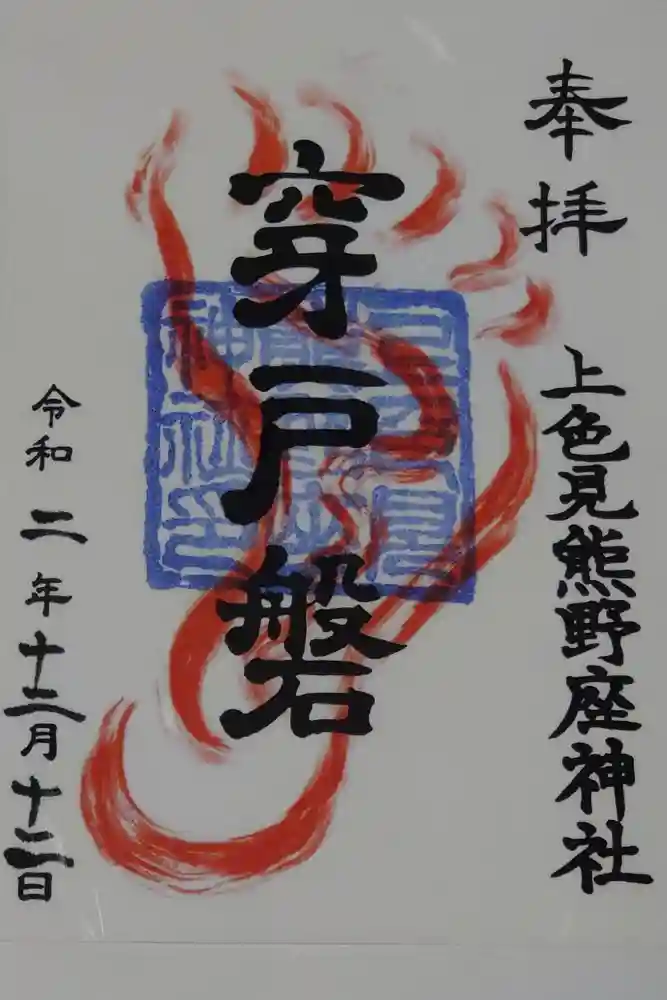 奉拝
上色見熊野座神社
穿戸磐
令和二年十二月十二日